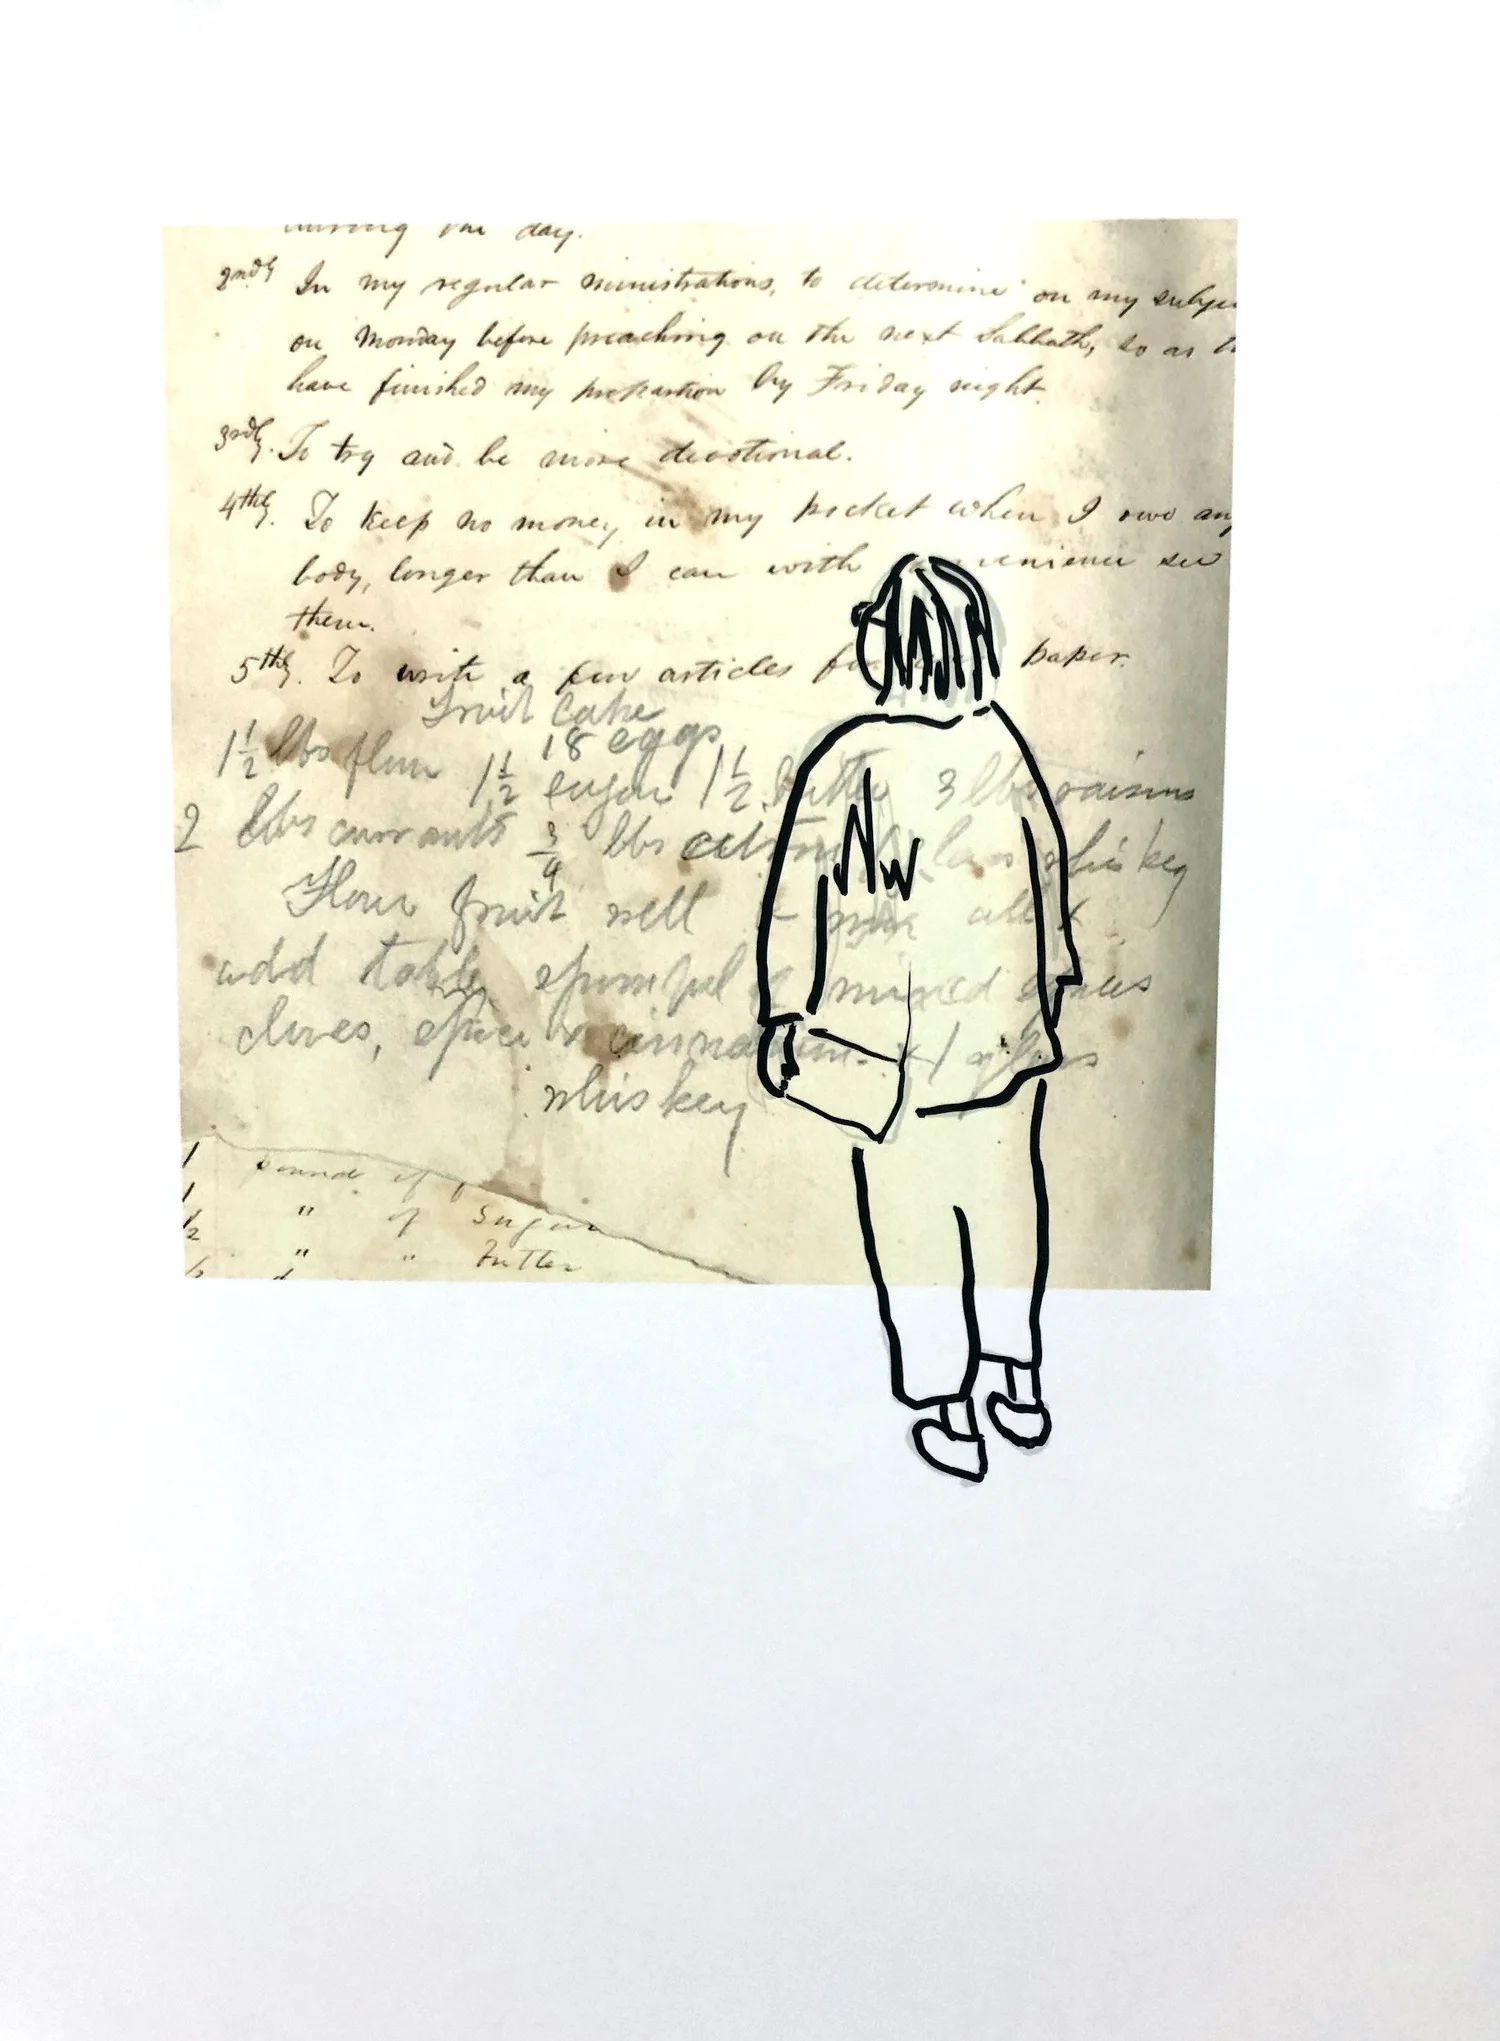 day.
2ndly In my regular ministrations, to determine on my subje
on Monday before preaching on the next Sabbath, so as t
have finished my prepartion by Friday night.
3rdly. To try and be more devotional.
4thly. To keep no money in my pocket when I owe any
body, longer than I can with nvenience see
them.
5thly. To write a few articles fo paper.
Fruit Cake
18 eggs
1½ lbs flour 1½ sugar 1½ butter 3 lbs raisins
2 lbs currants ¾ lbs citron glass whiskey
Flour fruit well & mix all &
add table spoonful of mixed spices
cloves, spice & cinnamon. & 1 glass
whiskey
1 pound of
1 " of Sugar
½ " " Butter